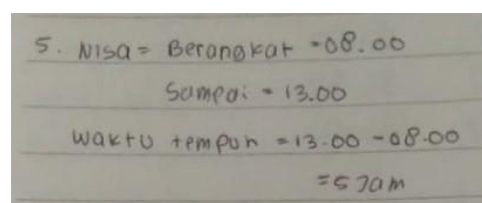 5. Nisa = Berangkat = 08.00
Sampai = 13.00
Waktu tempuh = 13.00 - 08.00
= 5 Jam